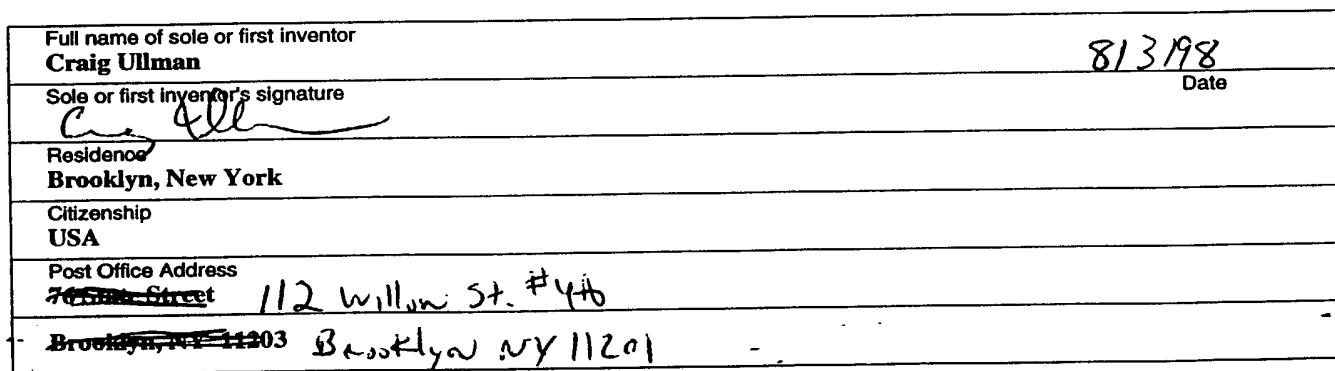 Full name of sole or first inventor
Craig Ullman
8/3/98
Date
Sole or first inventor's signature
Residence
Brooklyn, New York
Citizenship
USA
Post Office Address
76 State Street 112 Willow St. #
Brooklyn, NY 11203 Brooklyn NY 11201